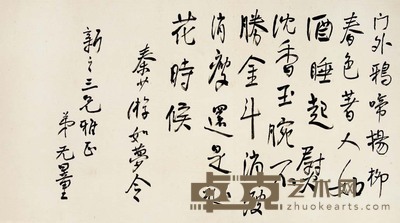 门外鴉啼楊柳
春色著人如
酒睡起熨
沈香玉腕不
勝金斗消瘦
消瘦還是褪
花時候
秦少游如夢令
新之三兄雅正
弟元
卓克艺术网
www.zhuokearts.com